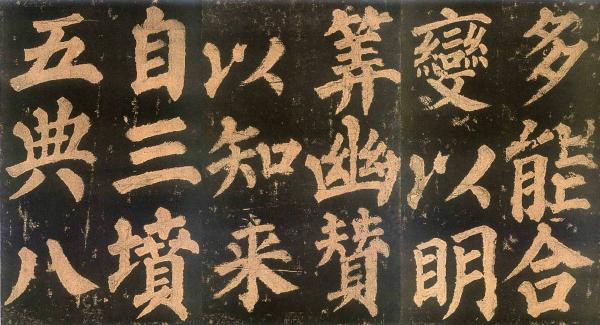 多能合
變以明
筭幽贊
以知来
自三墳
五典八